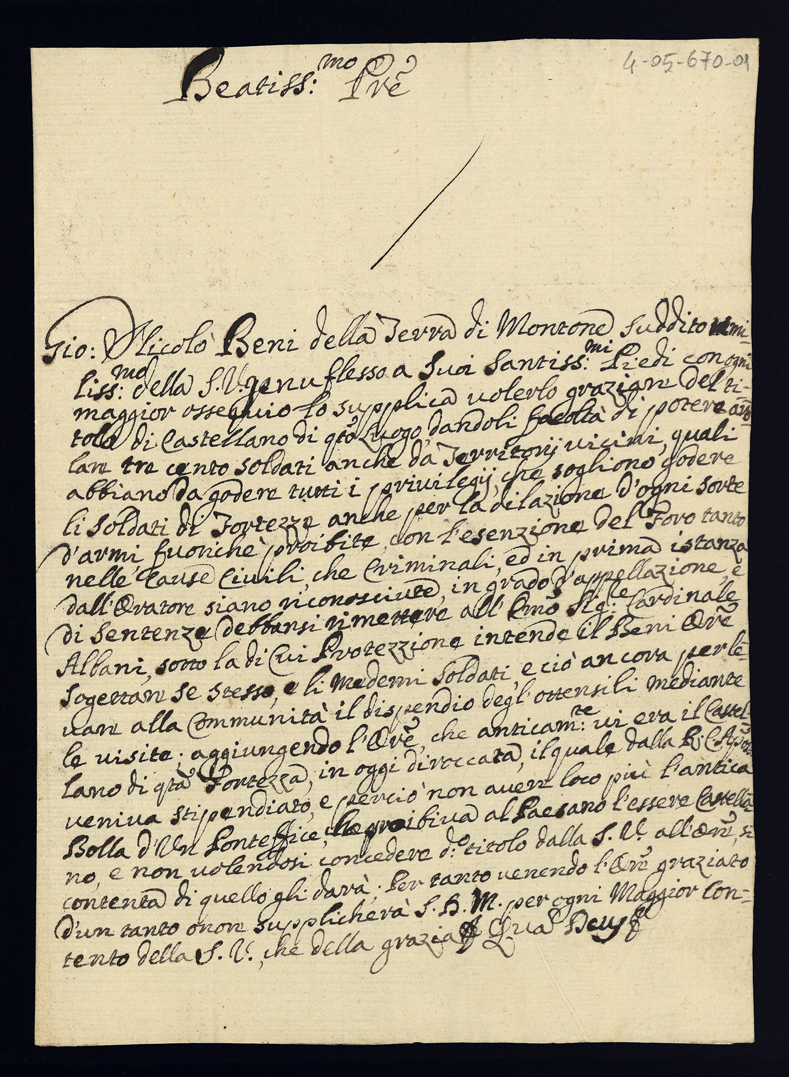 4-05-670-01
Beatiss:mo Prẽ
Gio: Nicolò Beni della Terra di Montone suddito umi-
liss:mo della S. V. genuflesso a Suoi Santiss:mi Piedi con ogni
maggior ossequio lo supplica volerlo graziare del ti-
tolo di Castellano di qto Luogo, dandoli facoltà di potere
lare tre cento soldati anche da Territorij vicini, quali
abbiano da godere tutti i privilegij, che sogliono godere
li Soldati di Fortezze anche per la dilazione d'ogni sorte
d'armi fuorche proibite, con l'esenzione del Foro tanto
nelle Cause Civili, che Criminali, ed in prima istanza
dall'Oratore siano riconosciute, in grado d'appellazione, e
di Sentenze debbansi rimettere all' Emõ Sig:le Cardinale
Albani, sotto la di Cui Protezzione intende il Beni Orẽ
sogettare se stesso, e li medemi Soldati, e ciò ancora per le-
vare alla Communità il dispendio degl'ottensili mediante
le visite; aggiungendo l'Orẽ, che anticam:te vi era il Castel-
lano di qta Fortezza, in oggi diroccata, il quale dalla R: C. Aplca
veniva stipendiato, e perciò non avere loco più l'antica
Bolla d'Un Pontefice, che proibiva al Paesano l'essere Castella-
no, e non volendosi concedere do titolo dalla S. V. all'Orẽ, si
contenta di quello gli darà; Per tanto venendo l'Orẽ graziato
d'un tanto onore supplicherà S. D. M. per ogni Maggior Con-
tento della S. V., che della grazia Qua Deus